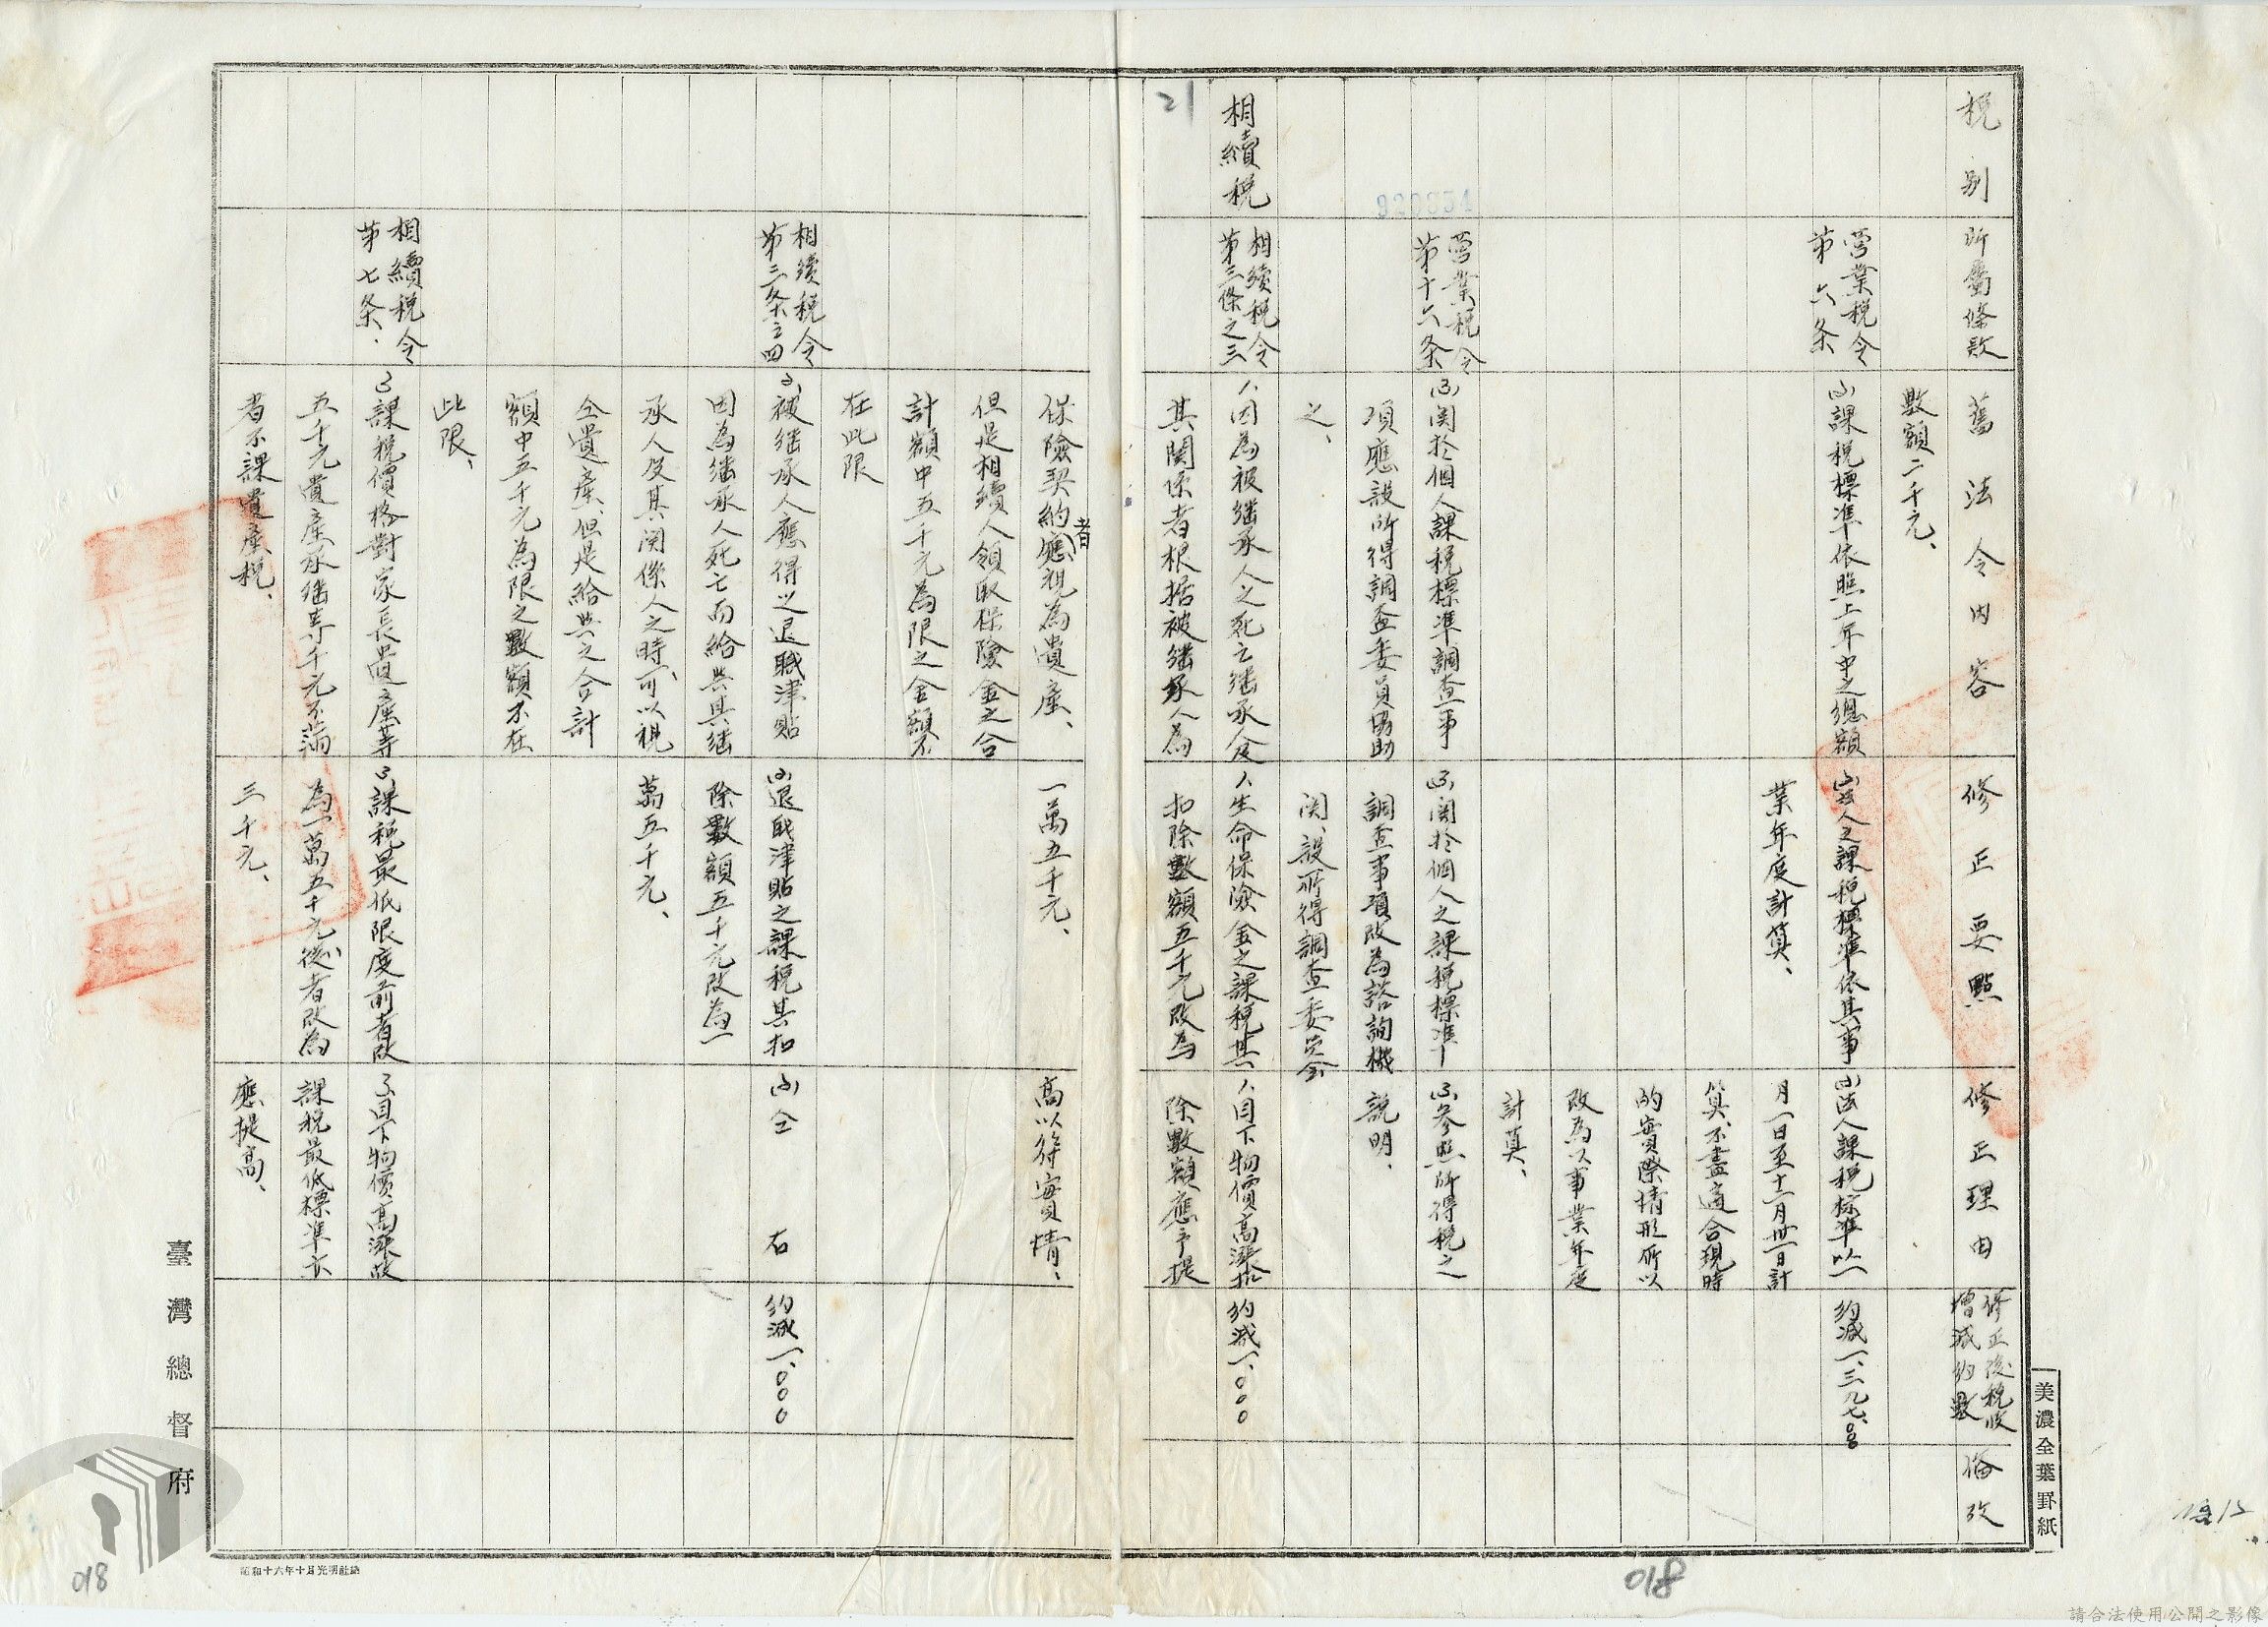 税別
所屬條欵
舊法令内容
修正要點
修正理由
修正後税收
增減約數
備攷
數額二千元、
營業税令
第六条
(2)課税標準依照上年中之總額
(2)法人之課税標準依其事
業年度計算、
(2)法人課税標準以一
月一日至十二月卅一日計
算、不盡適合現時
的實際情形所以
改為以事業年度
計算、
約減一、三九七、〇〇〇
營業税令
第十六条
(3)関於個人課税標準調查事
項應設所得調查委員協助
之、
(3)関於個人之課税標準
調查事項改為諮詢機
関、設所得調查委員会
(3)參照所得税之
説明、
相續税
相續税令
第三條之三
1、因為被繼承人之死亡繼承人及
其関係者根据被繼承人為
保險契約者應視為遺產、
但是相續人領取保險金之合
計額中五千元為限之金額不
在此限
1、生命保險金之課税其
扣除數額五千元改為
一萬五千元、
1、目下物價高漲扣
除數額應予提
高以符實情、
約減一、〇〇〇
相續税令
第三条之四
(2)被繼承人應得之退職津貼
因為繼承人死亡而給與其繼
承人及其関係人之時、可以視
仝遺產、但是給與之合計
額中五千元為限之數額不在
此限、
(2)退職津貼之課税其扣
除數額五千元改為一
萬五千元、
(2)仝右
約減一、〇〇〇
相續税令
第七条、
3、課税價格對家長遺產等
五千元遺產承繼等千元不滿
者不課遺產税、
3、課税最低限度前者改
為一萬五千元後者改為
三千元、
3、目下物價高漲故
課税最低標準亦
應提高、
21
018
018
臺灣總督府
美濃全葉罫紙
昭和十六年十月光明社納
請合法使用公開之影像